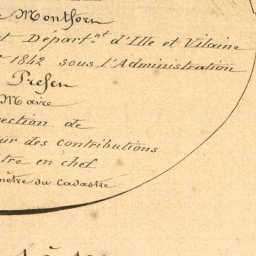 e Montfort
t Départ.nt d'Ille et Vilaine
1842 sous l'Administration
Préfet
Maire
ection de
ur des contributions
tre en chef
mètre du Cadastre